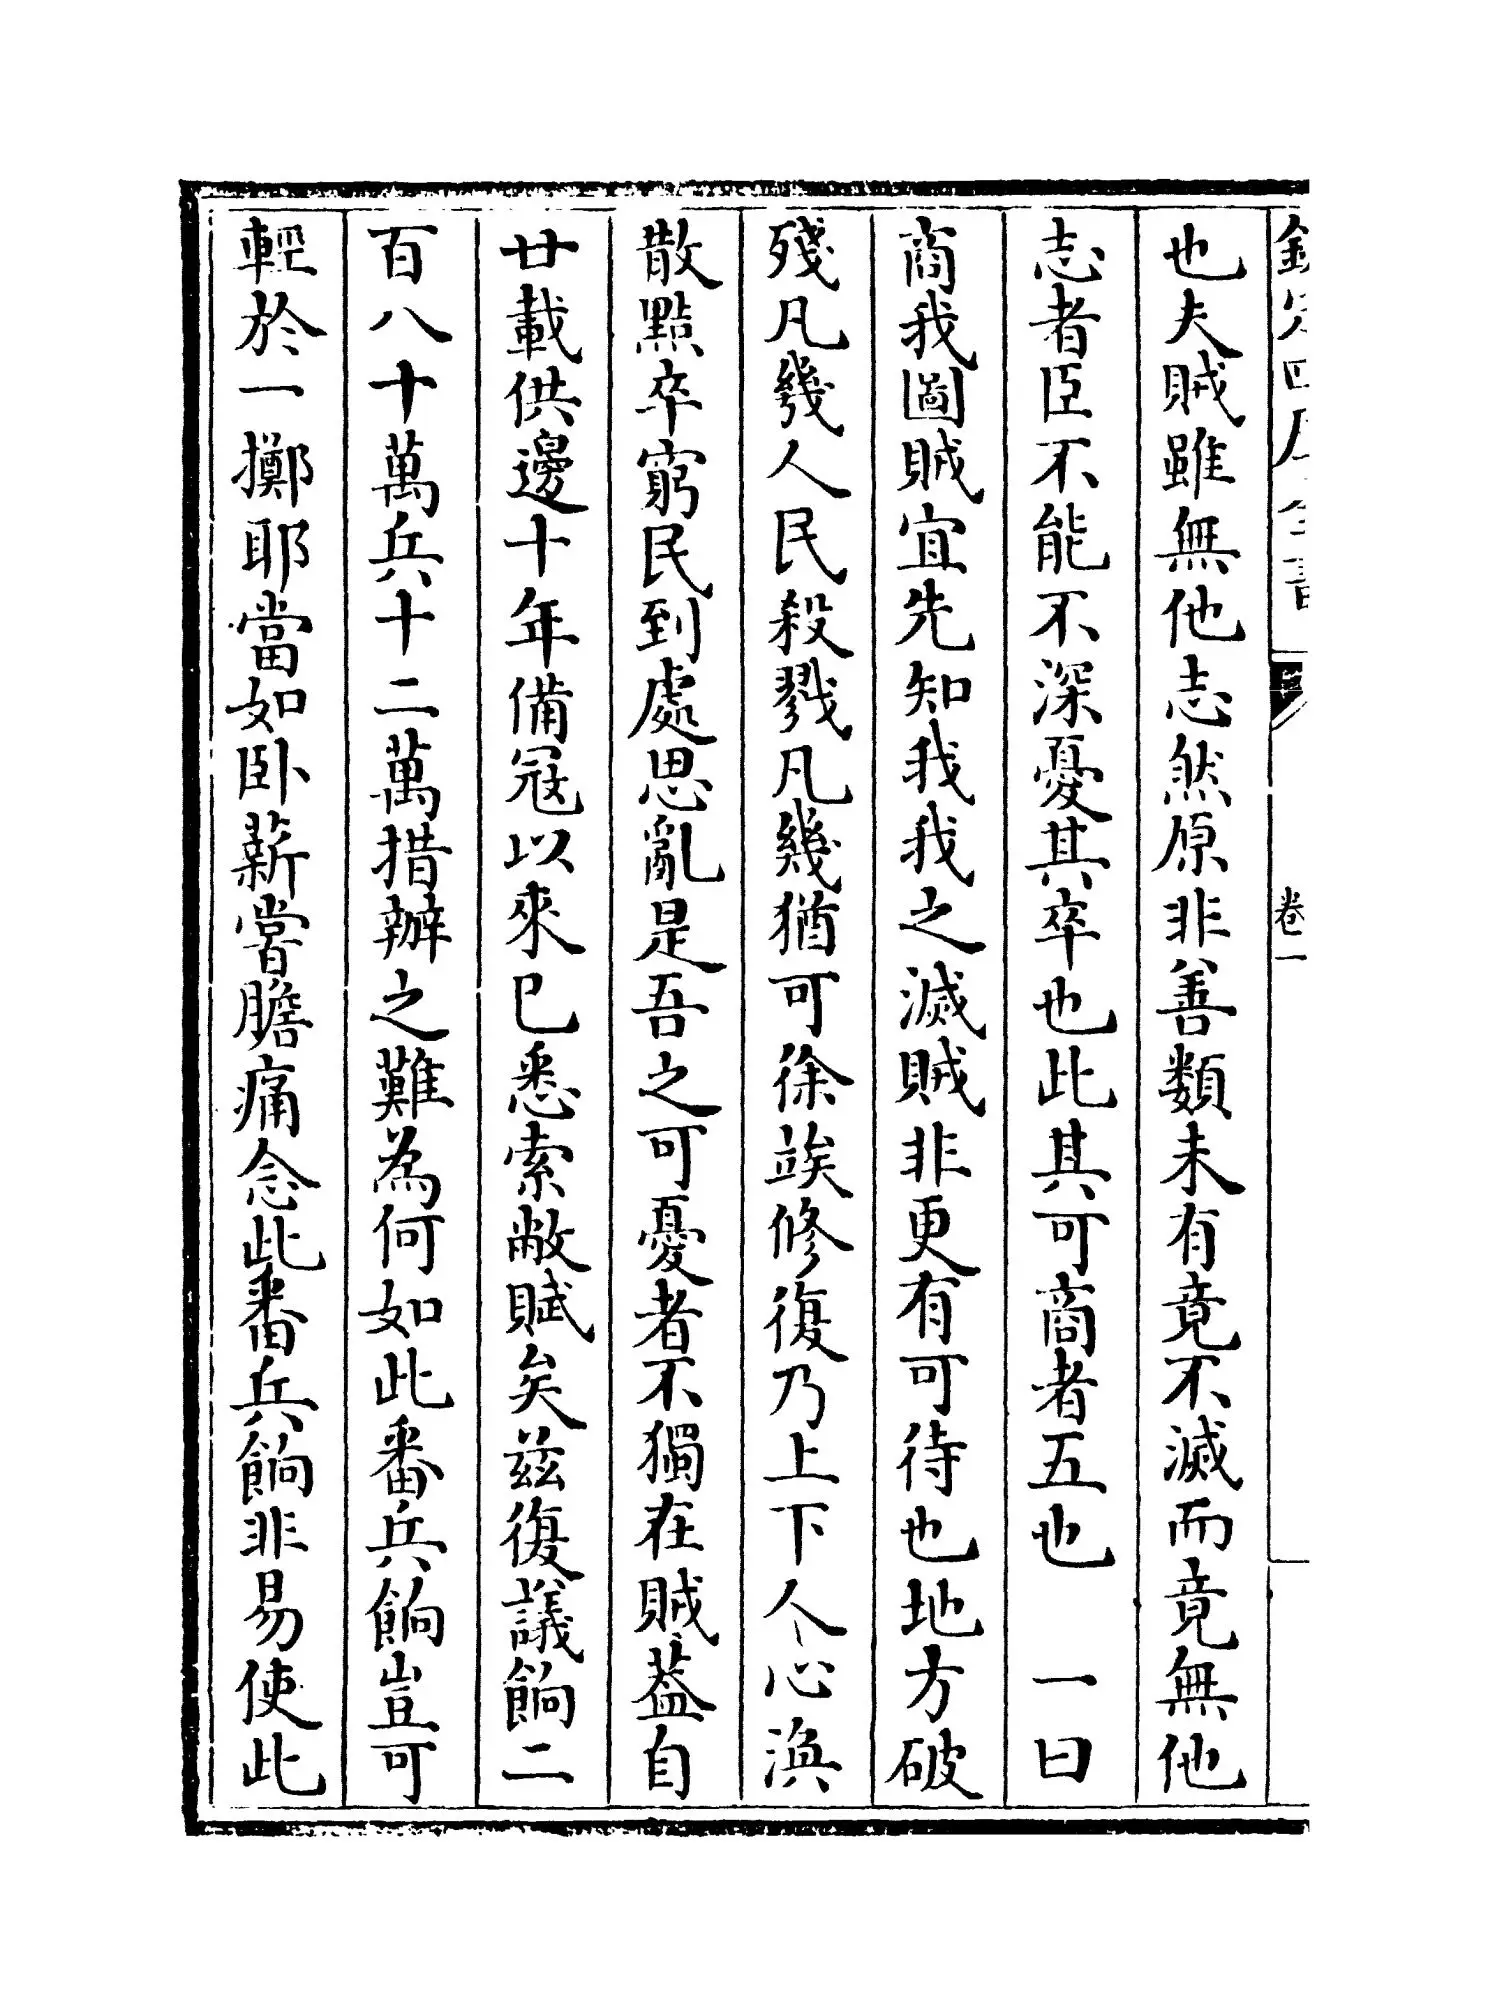 欽定四庫全書
卷一
也夫賊雖無他志然原非善類未有竟不滅而竟無他
志者臣不能不深憂其卒也此其可商者五也　一曰
商我圖賊宜先知我我之滅賊非更有可待也地方破
殘凡幾人民殺戮凡幾猶可徐竢修復乃上下人心渙
散黠卒窮民到處思亂是吾之可憂者不獨在賊葢自
廿載供邊十年備冦以來已悉索敝賦矣兹復議餉二
百八十萬兵十二萬措辦之難為何如此番兵餉豈可
輕於一擲耶當如卧薪嘗膽痛念此番兵餉非易使此